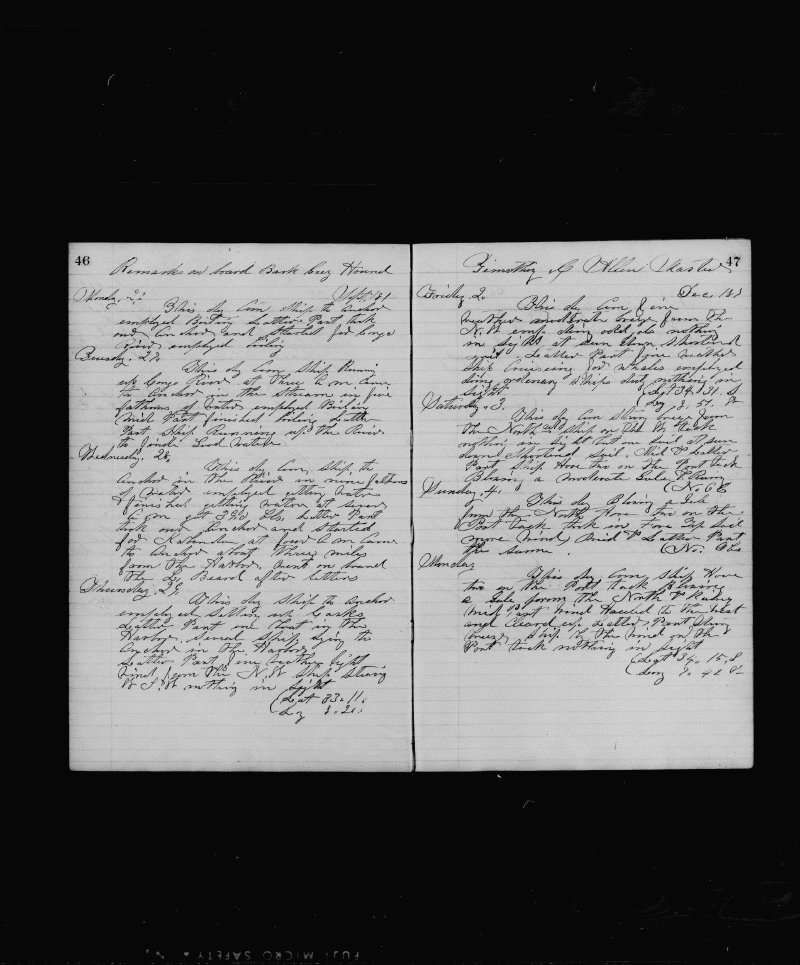 46
Remarks on board Bark Greyhound
Monday, 2
Sept. 81
This day Com Ship to Anchor
employed Boiling Latter Part took
our Anchor and Started for Congo
River employed boiling
Tuesday, 27
This day Com Ship Running
up Congo River at Three A m Came
to Anchor in the Stream in five
fathoms of water employed Boiling
Mid Part finished boiling Latter
Part Ship Running up the River
to find Good water
Wednesday, 28
This day Com, Ship, to
Anchor in the River in nine fathoms
of water employed getting water
finished getting water at seven
A m got bbls, Latter Part
took our Anchor and Started
for at four A m Came
to Anchor about Three miles
from the Harbor, went on board
the L, Beard after letters
Thursday, 29
This day Ship to Anchor
employed Setting up Casks
Latter Part one boat in the
Harbor, Several Ships lying to
Anchor in the Harbor
Latter Part fine weather light
wind from the Ship Steering
nothing in Sight
(Lat 33.11,
Lo
47
Timothy C Allen Master
Friday 2
Dec. 1
This day Com fine
weather moderate breeze from the
emp doing odd jobs nothing
in Sight at Sun down Shortened
Sail, Latter Part fine weather
Ship Cruising for whales employed
doing ordenary Ships duty nothing in
Sight
(Lat 34.31. S
Log 51.
Saturday. 3.
This day Com Strong breeze from
the North Ship on tack
nothing in Sight but one Sail at sun
down Shortened Sail. Mid & Latter
Part Ship Hove two on the Port tack
Blowing a moderate Gale & Rainy
(No Ob
Sunday, 4.
This day Blowing a Gale
from the North Hove two on the
Port tack took in Fore Top Sail
more wind, Mid & Latter Part
the Same.
(No. Obs
Monday
This day Com Ship Hove
two on the Port tack Blowing
a Gale from the North & Rainy
Mid Part wind Hauled to the West
and Cleard up Latter, Part Strong
breeze, Ship by the wind on the
Port tack nothing in Sight
(Lat 34. 15, S
Long 42
FUJI MICRO SAFETY